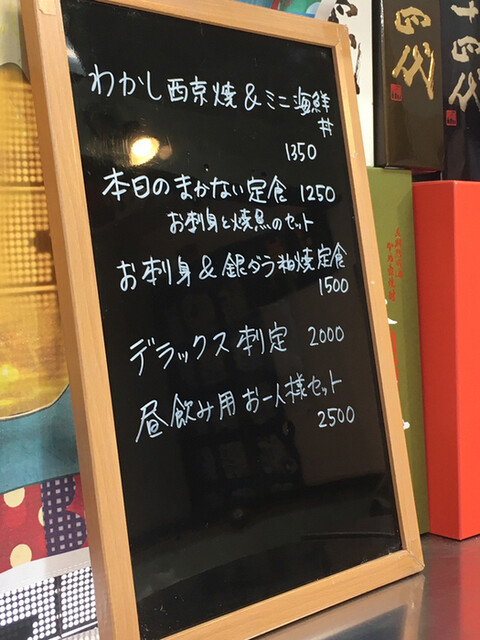 わかし西京焼&ミニ海鮮
丼
1350
本日のまかない定食 1250
お刺身と焼魚のセット
お刺身&銀ダラ粕焼定食
1500
デラックス刺定 2000
昼飲み用お一人様セット
2500
四代
十四代